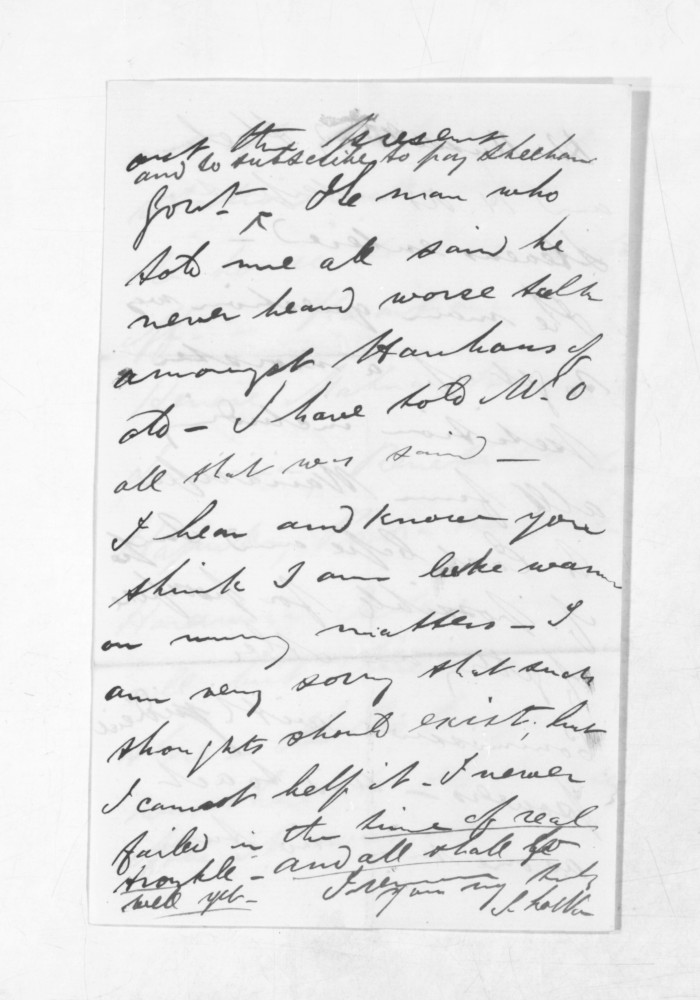 out the present
and to subscribe to pay Sheehan
Govt. ^ The man who
told me all said he
never heard worse talk
amongst Hauhaus of
old - I have told Mr. O
all that was said -
I hear and know you
think I am luke warm
on many matters - I
am very sorry that such
thoughts should exist; but
I cannot help it - I never
failed in the time of real
trouble - and all shall go
well yet -
I remain my